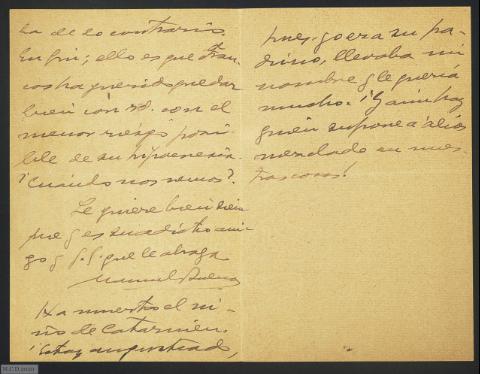 ha de lo contrario.
En fin; ello es que Fran-
cos ha querido quedar
bien con Vd. con el
menor riesgo posi-
ble de su
¿Cuándo nos vemos?.
Le quiere bien siem
pre y es su adicto ami-
go y s.s. que le abraza
Manuel Bueno
Ha muerto el ni-
ño de Catarineu.
¡Estoy angustiado,
pues yo era su pa-
drino, llevaba mi
nombre y le quería
mucho. ¡Y aún hay
quien supone a Dios
mezclado en nues
tras cosas!
M.C.D. 2022